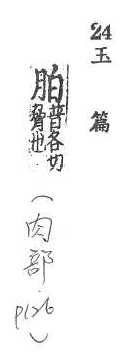 24玉篇
胉普各切
脅也
(肉部
p126)